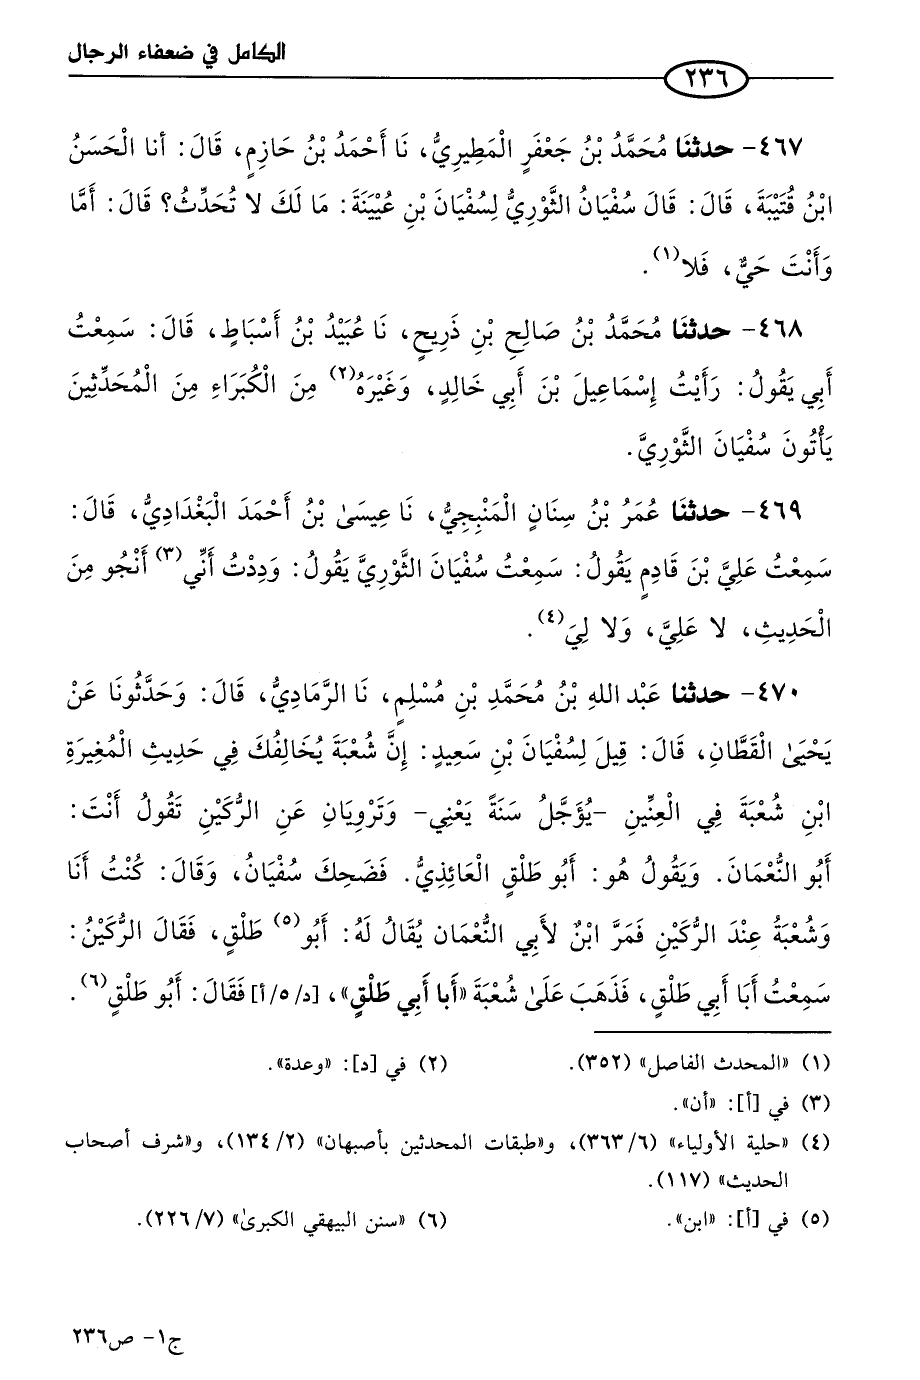 الكامل في ضعفاء الرجال
٢٣٦
٤٦٧- حدثنا مُحَمَّدُ بْنُ جَعْفَرٍ الْمَطِيرِيُّ، نَا أَحْمَدُ بْنُ حَازِمٍ، قَالَ: أنا الْحَسَنُ
ابْنُ قُتَيْبَةَ، قَالَ: قَالَ سُفْيَانُ الثَّوْرِيُّ لِسُفْيَانَ بْنِ عُيَيْنَةَ: مَا لَكَ لا تُحَدِّثُ؟ قَالَ: أَمَّا
وَأَنْتَ حَيٌّ، فَلا(١).
٤٦٨- حدثنَا مُحَمَّدُ بْنُ صَالِحِ بْنِ ذَرِيحٍ، نَا عُبَيْدُ بْنُ أَسْبَاطٍ، قَالَ: سَمِعْتُ
أَبِي يَقُولُ: رَأَيْتُ إِسْمَاعِيلَ بْنَ أَبِي خَالِدٍ، وَغَيْرَهُ(٢) مِنَ الْكُبَرَاءِ مِنَ الْمُحَدِّثِينَ
يَأْتُونَ سُفْيَانَ الثَّوْرِيَّ.
٤٦٩- حدثنَا عُمَرُ بْنُ سِنَانٍ الْمَنْبِجِيُّ، نَا عِيسَىٰ بْنُ أَحْمَدَ الْبَغْدَادِيُّ، قَالَ:
سَمِعْتُ عَلِيَّ بْنَ قَادِمٍ يَقُولُ: سَمِعْتُ سُفْيَانَ الثَّوْرِيَّ يَقُولُ: وَدِدْتُ أَنِّي(٣) أَنْجُو مِنَ
الْحَدِيثِ، لا عَلِيَّ، وَلا لِيَ(٤).
٤٧٠- حدثنا عَبْد اللهِ بْنُ مُحَمَّدِ بْنِ مُسْلِمٍ، نَا الرَّمَادِيُّ، قَالَ: وَحَدَّثُونَا عَنْ
يَحْيَىٰ الْقَطَّانِ، قَالَ: قِيلَ لِسُفْيَانَ بْنِ سَعِيدٍ: إِنَّ شُعْبَةَ يُخَالِفُكَ فِي حَدِيثِ الْمُغِيرَةِ
ابْنِ شُعْبَةَ فِي الْعِنِّينِ -يُؤَجَّلُ سَنَةً يَعْنِي- وَتَرْوِيَانِ عَنِ الرُّكَيْنِ تَقُولُ أَنْتَ:
أَبُو النُّعْمَانَ. وَيَقُولُ هُو: أَبُو طَلْقٍ الْعَائِذِيُّ. فَضَحِكَ سُفْيَانُ، وَقَالَ: كُنْتُ أَنَا
وَشُعْبَةُ عِنْدَ الرُّكَيْنِ فَمَرَّ ابْنٌ لأَبِي النُّعْمَان يُقَالُ لَهُ: أَبُو(٥) طَلْقٍ، فَقَالَ الرُّكَيْنُ:
سَمِعْتُ أَبَا أَبِي طَلْقٍ، فَذَهَبَ عَلَىٰ شُعْبَةَ «أَبا أَبِي طَلْقٍ»، [د/ ٥/ أ] فَقَالَ: أَبُو طَلْقٍ(٦).
(١) «المحدث الفاصل» (٣٥٢). (٢) في [د]: «وعدة».
(٣) في [أ]: «أن».
(٤) «حلية الأولياء» (٦/ ٣٦٣)، و«طبقات المحدثين بأصبهان» (٢/ ١٣٤)، و«شرف أصحاب
الحديث» (١١٧).
(٥) في [أ]: «ابن». (٦) «سنن البيهقي الكبرىٰ» (٧/ ٢٢٦).
ج١- ص٢٣٦